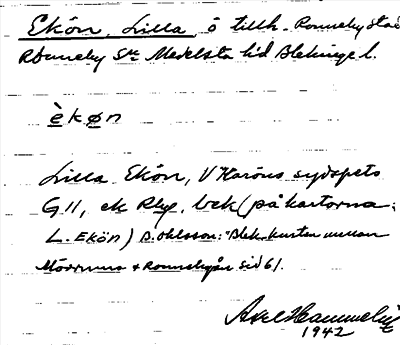 Ekön, Lilla ö tillh. Ronneby stad
Ronneby Sn Medelsta hd Blekinge l.
èkøn
Lilla Ekön, V Karöns sydspets
G 11, ek Rby. bek (på kartorna:
L. Ekön) B. Ohlsson: "Blek. kusten mellan
Mörrums & Ronnebyån sid 61.
Axel Hammelin
1942